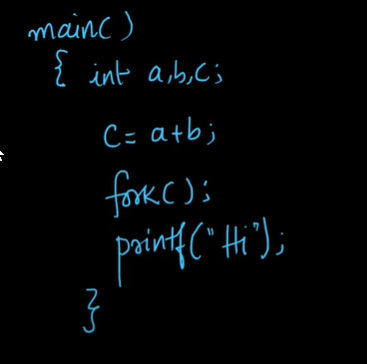 main( )
{ int a,b,c;
c= a+b;
fork( );
printf("Hi");
}